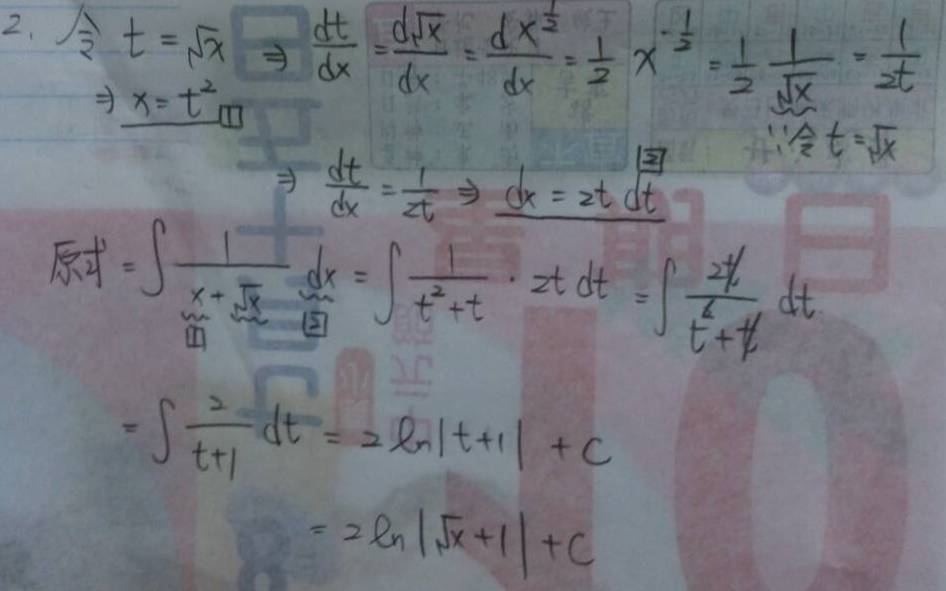 2. 令 t = √x ⇒ dt/dx = d√x/dx = dx^(1/2)/dx = 1/2 x^(-1/2) = 1/2 1/√x = 1/2t
⇒ x = t² [1]
∵令 t = √x
⇒ dt/dx = 1/2t ⇒ dx = 2t dt [2]
原式 = ∫ 1/(x + √x) dx = ∫ 1/(t² + t) · 2t dt = ∫ 2t/(t² + t) dt
[1] [2]
= ∫ 2/(t+1) dt = 2 ln|t+1| + C
= 2 ln|√x+1| + C